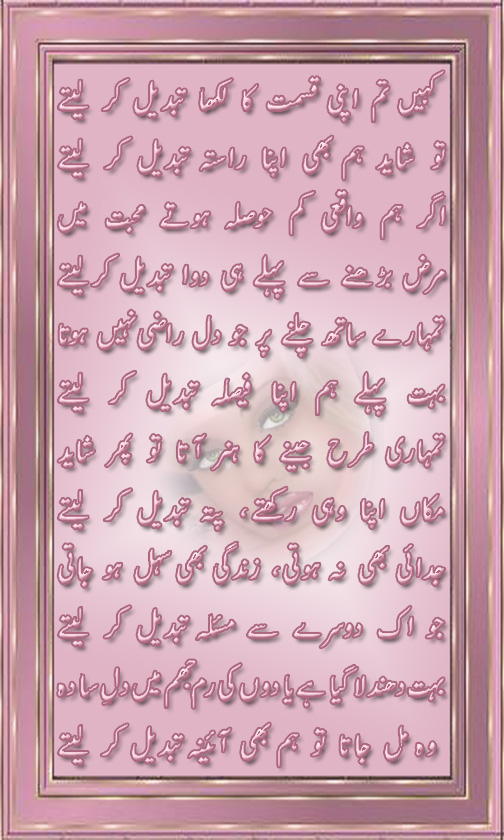 کہیں تم اپنی قسمت کا لکھا تبدیل کر لیتے
تو شاید ہم بھی اپنا راستہ تبدیل کر لیتے
اگر ہم واقعی کم حوصلہ ہوتے محبت میں
مرض بڑھنے سے پہلے ہی دوا تبدیل کر لیتے
تمہارے ساتھ چلنے پر جو دل راضی نہیں ہوتا
بہت پہلے ہم اپنا فیصلہ تبدیل کر لیتے
تمہاری طرح جینے کا ہنر آتا تو پھر شاید
مکاں اپنا وہی رکھتے، پتہ تبدیل کر لیتے
جدائی بھی نہ ہوتی، زندگی بھی سہل ہو جاتی
جو اک دوسرے سے مسئلہ تبدیل کر لیتے
بہت دھندلا گیا ہے یادوں کی رم جھم میں دلِ سادہ
وہ مل جاتا تو ہم بھی آئینہ تبدیل کر لیتے